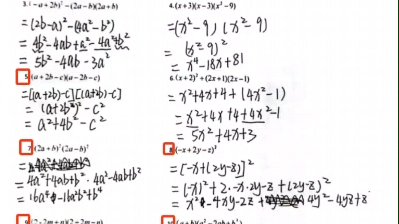 3.(-a+2b)²-(2a-b)(2a+b)
=(2b-a)²-(4a²-b²)
=4b²-4ab+a²-4a²+b²
=5b²-4ab-3a²
4.(x+3)(x-3)(x²-9)
=(x²-9)(x²-9)
=(x²-9)²
=x⁴-18x+81
5.(a+2b-c)(a-2b-c)
=[(a+2b)-c][(a+2b)-c]
=(a+2b²)²-c²
=a²+4b²-c²
6.(x+2)²+(2x+1)(2x-1)
=x²+4x+4+(4x²-1)
=x²+4x+4+4x²-1
=5x²+4x+3
7.(2a+b)²(2a-b)²
=4a²+4ab+b²·4a²-4ab+b²
=16a⁴-16a²b²+b⁴
8.(-x+2y-z)²
=[-x+(2y-z)]²
=(-x)²+2·-x·2y-z+(2y-z)²